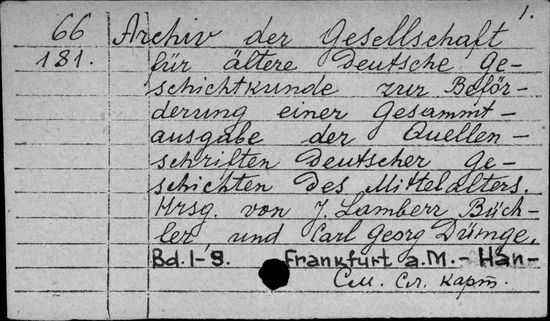 1.
66 Archiv der Gesellschaft
181. für ältere Deutsche Ge-
schichtkunde zur Beför-
derung einer Gesammt-
ausgabe der Quellen-
schriften Deutscher Ge-
schichten des Mittelalters.
Hrsg. von J. Lamberr Büch-
ler und Carl Georg Dümge.
Bd. I-9. Frankfurt a.M. - Han-
См. Сл. карт.